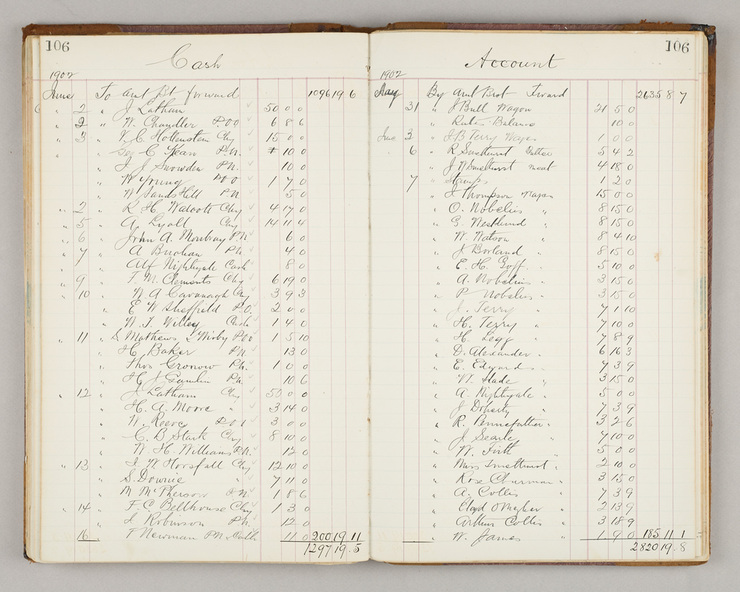 106
Cash
1902
June To amt forward 1096 19 6
" 2 " J Latham 50 0 0
" 2 " W. Chandler P.O.O 6 8 6
" 3 " Chq 15 0 0
" C. Kean P.N. 10 0
" J. J. Snowden P.N. 10 0
" W Young P.O.O 1 7 0
" W Sandshell P.N. 5 0
" 2 " R. H. Walcott Chq 4 17 0
" 5 " A. Lyall Chq 14 11 4
" 6 " John A. Monbray P.N. 6 0
" 7 " A P.N. 4 0
" Alf Nightgale Cash 8 0
" 9 " T. M. Clements Chq 6 19 0
" 10 " W A Cavanagh Chq 3 9 3
" E W Sheffield P.O. 2 0 0
" W. J. Willey Cash 1 4 0
" 11 " S Mathews P.O.O 1 5 10
" H. Baker P.N. 13 0
" Thos Cronow P.N. 1 0 0
" H J Gamlin P.N. 10 6
" 12 " J. Latham Chq 50 0 0
" H. A. Moore " 3 14 0
" W. Reeve P.O.O 3 0 0
" C. B Stark Chq 8 10 0
" W. H. Williams P.N. 12 0
" 13 " W Horsfall Chq 12 10 0
" S. Downie " 7 11 0
" M McPherson P.N. 1 8 6
" 14 " F. C Bellhouse Chq 1 3 0
" J Robinson P.N. 12 0
" 16 " T Newman P.N. 11 0 200 19 11
1297 19 5
106
Account
1902
May By amt forward 2635 8 7
31 " J Bull Wagon 21 5 0
" Balance 10 0
June 3 " J B Terry Wages 1 0 0
6 " R Smethurst Butter 5 4 2
" J W Smethurst meat 4 18 0
7 " Stamps 1 2 0
" J Thompson Wages 15 0 0
" O. Nobelius " 8 15 0
" G. Nestlund " 8 15 0
" W Watson " 8 4 10
" J Borland " 8 15 0
" E. H. Goff " 5 10 0
" A. Nobelius " 3 15 0
" P Nobelius " 3 15 0
" J. Terry " 7 1 10
" H. Terry " 7 10 0
" H. Legg " 7 8 9
" D. Alexander " 6 16 3
" E. Edgard " 7 3 9
" W. Slade " 3 15 0
" A. Nightgale " 5 0 0
" J Doherty " 7 3 9
" R. Pennefather " 3 2 6
" J Searle " 7 10 0
" W. Firth " 5 0 0
" Smethurst " 2 10 0
" Rose " 3 15 0
" A. Coller " 7 3 9
" 2 13 9
" Arthur Coller " 3 18 9
" W. James " 1 9 0 185 11 1
2820 19 8